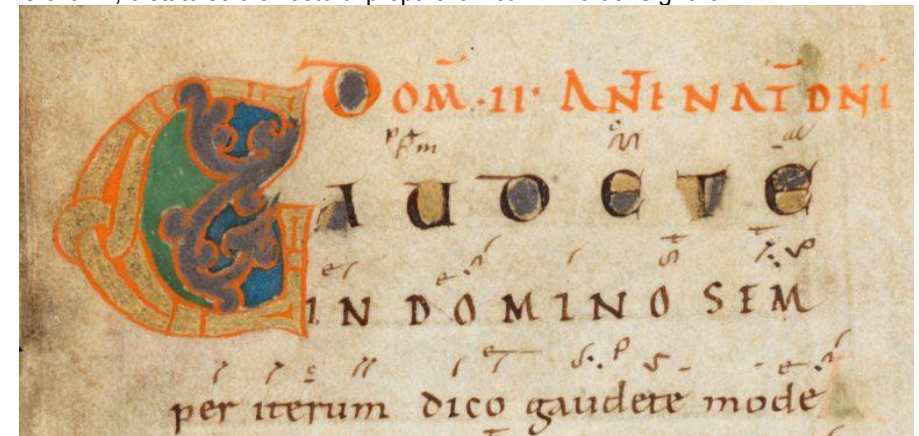 DOM̄ ·II· ANTE NAT̄ DN̄I
GAUDETE
IN DOMINO SEM
per iterum dico gaudete mode